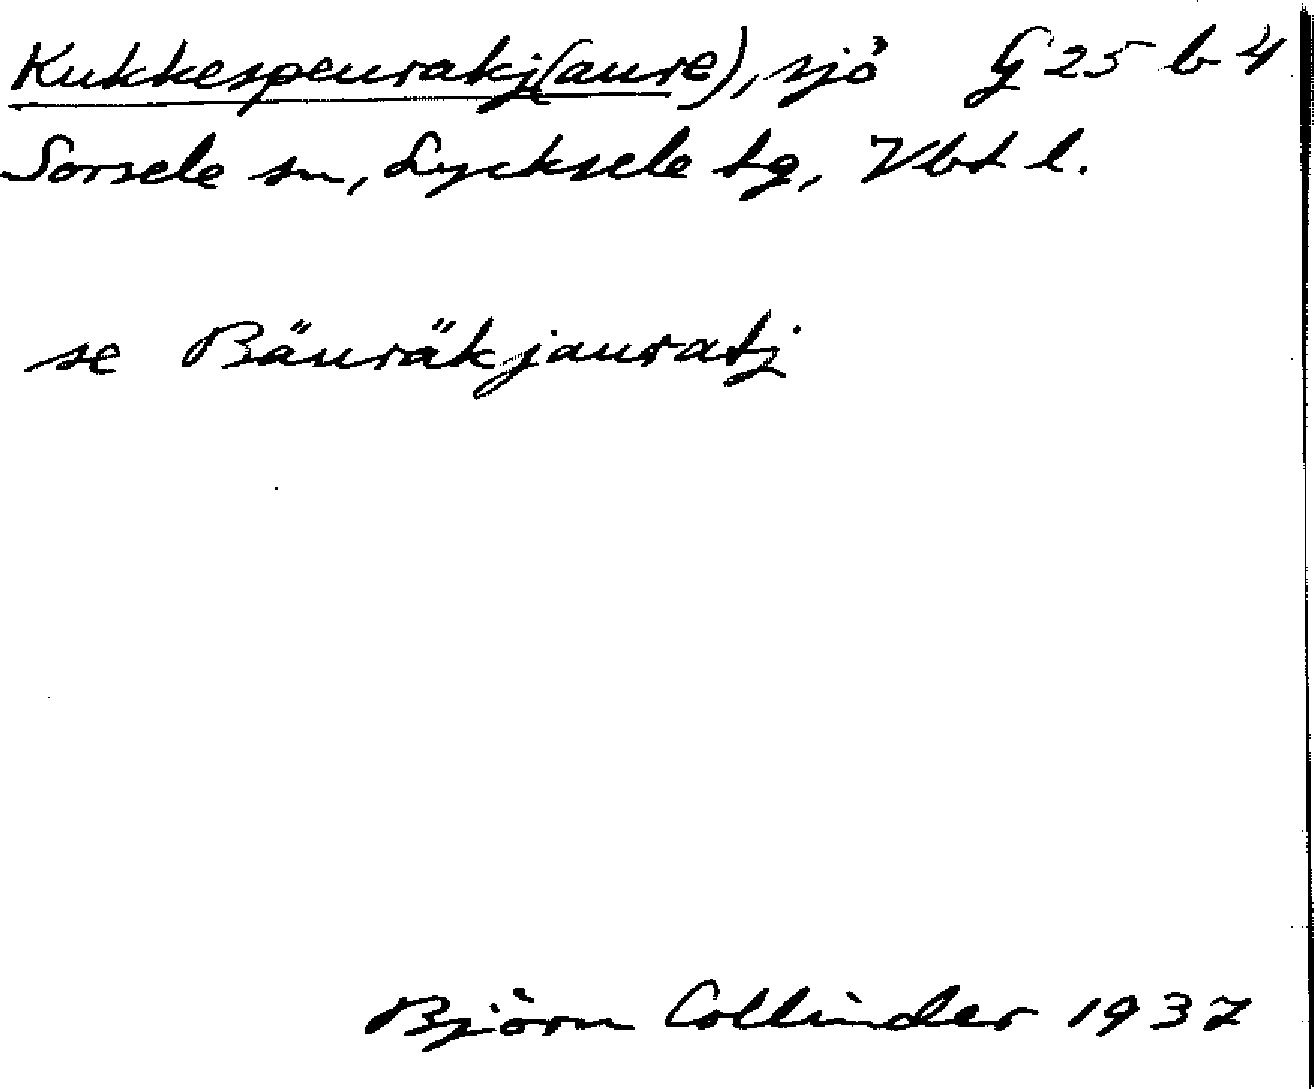 Kukkespeurakj(aure), sjö G 25 b 4
Sorsele sn, Lycksele tg, Vbt l.
se Bäuräkjauratj
Björn Collinder 1937